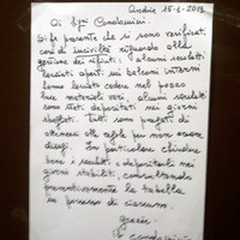 15-1-2013
Ai Sigg. Condomini.
Si fa presente che si sono verificati
casi di inciviltà riguardo alla
gestione dei rifiuti: alcuni sacchetti
lasciati aperti sui balconi interni
hanno lasciato cadere nel pozzo
luce materiali vari, alcuni sacchetti
sono stati depositati nei giorni
sbagliati. Tutti sono pregati di
attenersi alle regole per non creare
disagi. In particolare chiudere
bene i sacchetti e depositarli nei
giorni stabiliti, consultando
preventivamente la tabella
in possesso di ciascuno.
Grazie.